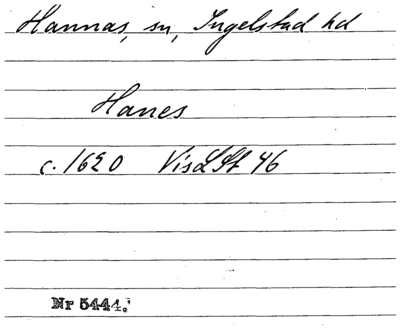 Hannas, sn, Ingelstad hd
Hanes
c. 1620 VisLSt 46
Nr 5444.